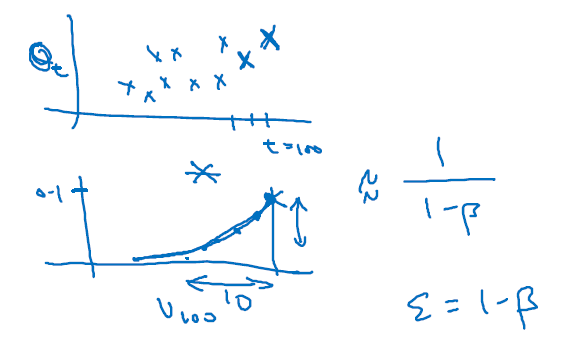 θt
t=100
0.1
10
V100
≈ 1/(1-β)
ε = 1-β